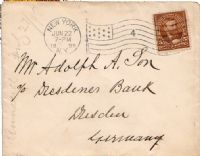 NEW YORK
JUN 22
7-PM
N.Y.
4
Mr Adolph A. Ton
Dresdener Bank
Dresden
Germany